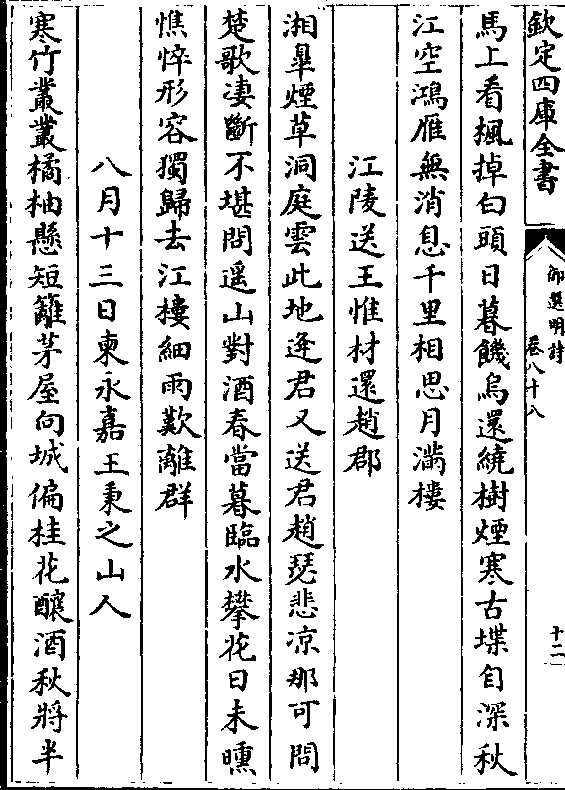 欽定四庫全書
御選明詩
卷八十八
十二
馬上看楓掉白頭日暮饑烏還繞樹煙寒古堞自深秋
江空鴻雁無消息千里相思月滿樓
江陵送王惟材還趙郡
湘臯煙草洞庭雲此地逢君又送君趙瑟悲凉那可問
楚歌凄斷不堪問遥山對酒春當暮臨水攀花日未曛
憔悴形容獨歸去江樓細雨歎離群
八月十三日柬永嘉王秉之山人
寒竹叢叢橘柚懸短籬茅屋向城偏桂花釀酒秋將半